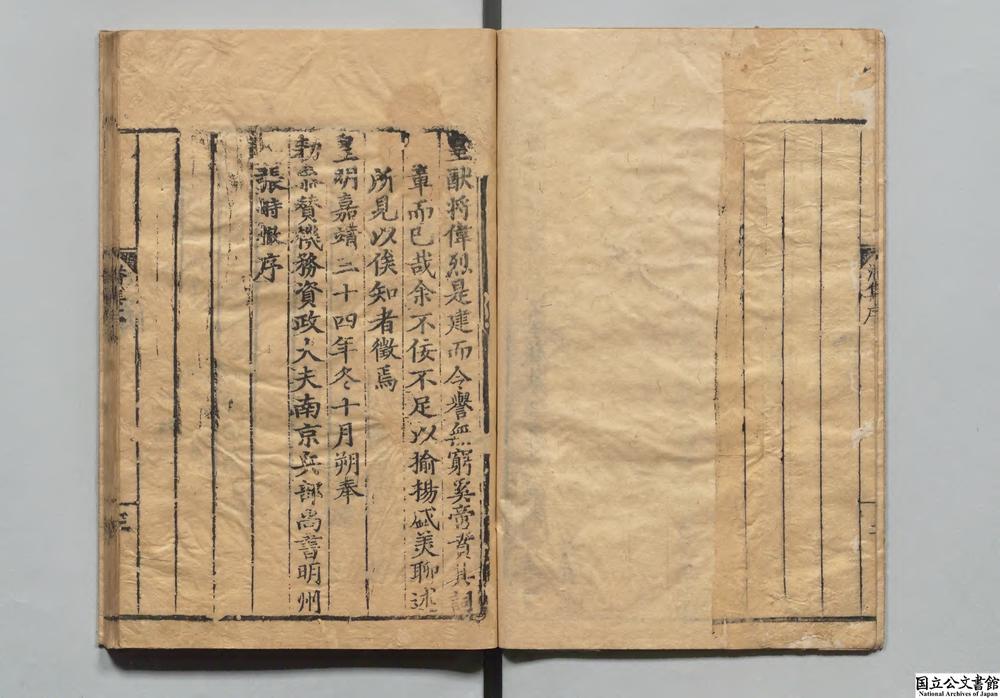 皇猷將偉烈是建而令譽無窮奚啻賁其詞
章而已哉余不佞不足以揄揚盛美聊述
所見以俟知者徵焉
皇明嘉靖二十四年冬十月朔奉
勑叅贊機務資政大夫南京兵部尚書明州
張時徹序
集序
三
國立公文書館
National Archives of Japan